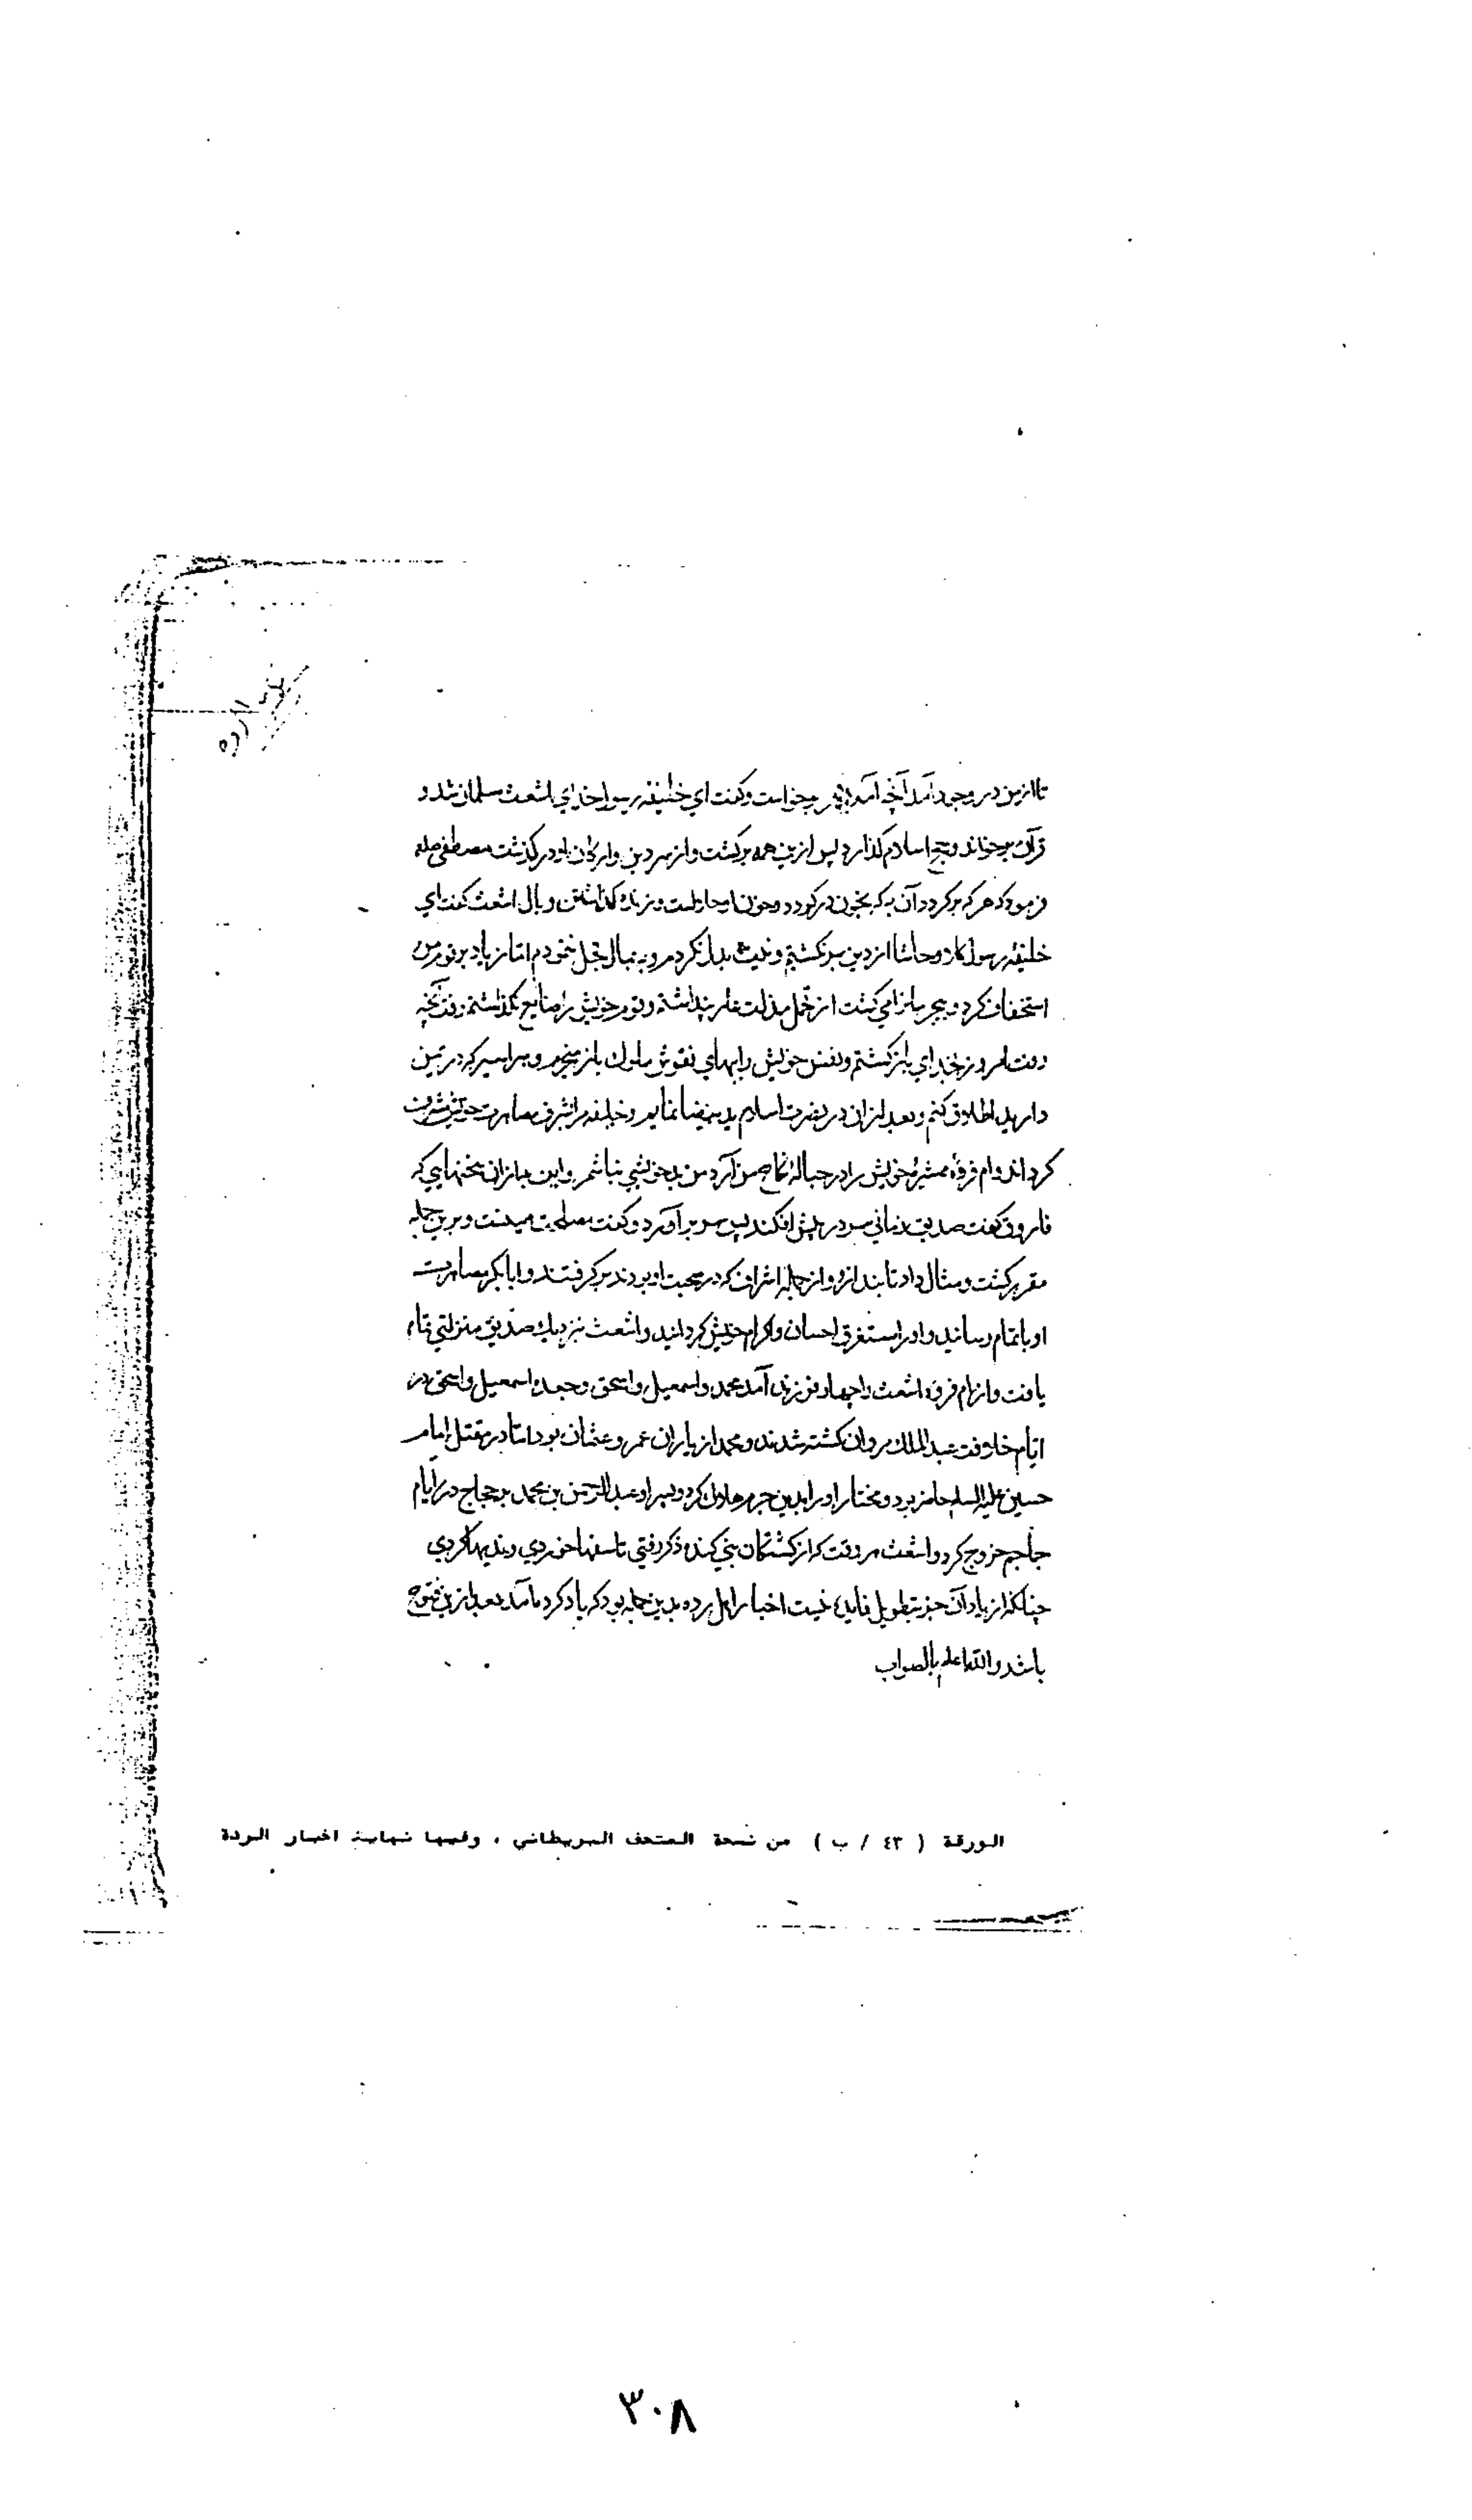 تا ازین در وجود آمد آنچه آمد عمر برخواست و گفت ای خلیفه رسول خدای اشعث مسلمان شد و
قرآن برخواند و حج اسلام گذارد پس ازین همه برگشت و از سر دین وارکان او درگذشت مصطفی صلعم
فرمود که هر که برگردد آن به که بخون در گردد و خون او حلالست و زنده گذاشتن وبال اشعث گفت ای
خلیفه رسول کلا و حاشا از دین برنگشتم و ملت بدل نکردم و به بنال بخل ننمودم اما زیاد بر قوم من
استخفاف کرد و بی جرمانرا می کشت از تحمل مذلت عار پنداشتم و قوم خویش را ضایع نگذاشتم رفت آنچه
رفت امروز بخدای بازگشتم و نفس خویش را بهای نفوس ملوک باز میخرم و هر اسیر که در یمن
دارید اطلاق کنم و بعد ازان در نصرت اسلام ید بیضا نمایم و خلیفه مرا شرف مصاهرت خویش مشرف
کرداند و ام فروه همشیره خویش را در حباله نکاح من آرد من بد خویشی نباشم و این به ازان سخنهایی که
فاروق گفت صدیق زمانی سر در پیش افکند پس سر برآورد و گفت مصلحت هینست و برین جمله
مقرر گشت و مثال داد تا بند ازو و از جمله اشراف که در صحبت او بودند برگرفتند و ابا بکر مصاهرت
او باتمام رسانید و او را مستغرق احسان و اکرام خویش کردانید و اشعث نزدیک صدیق منزلتی تمام
یافت و از ام فروه اشعث را چهار فرزند آمد محمد و اسمعیل و اسحق و جعده اسمعیل و اسحق در
ایام خلافت عبد الملک مروان کشته شدند و محمد از یاران عمر و عثمان بود اما در مقتل امام
حسین علیه السلم حاضر بود و مختار او را بدین جرم هلاک کرد و پسر او عبد الرحمن بن محمد بر حجاج در ایام
جماجم خروج کرد و اشعث هر وقت که از کشتگان بنی کنده ذکر رفتی تاسفها خوردی و ندبها کردی
چنانکه از یاد آن جز تطویل نیاید اخبار اهل رده بدین جمله بود که یاد کرده آمد بعد ازین فتوح
باشد والله اعلم بالصواب
الورقة ( ٤٣ / ب ) من نسخة المتحف البريطاني ، وفيها نهاية اخبار الردة
٣٠٨